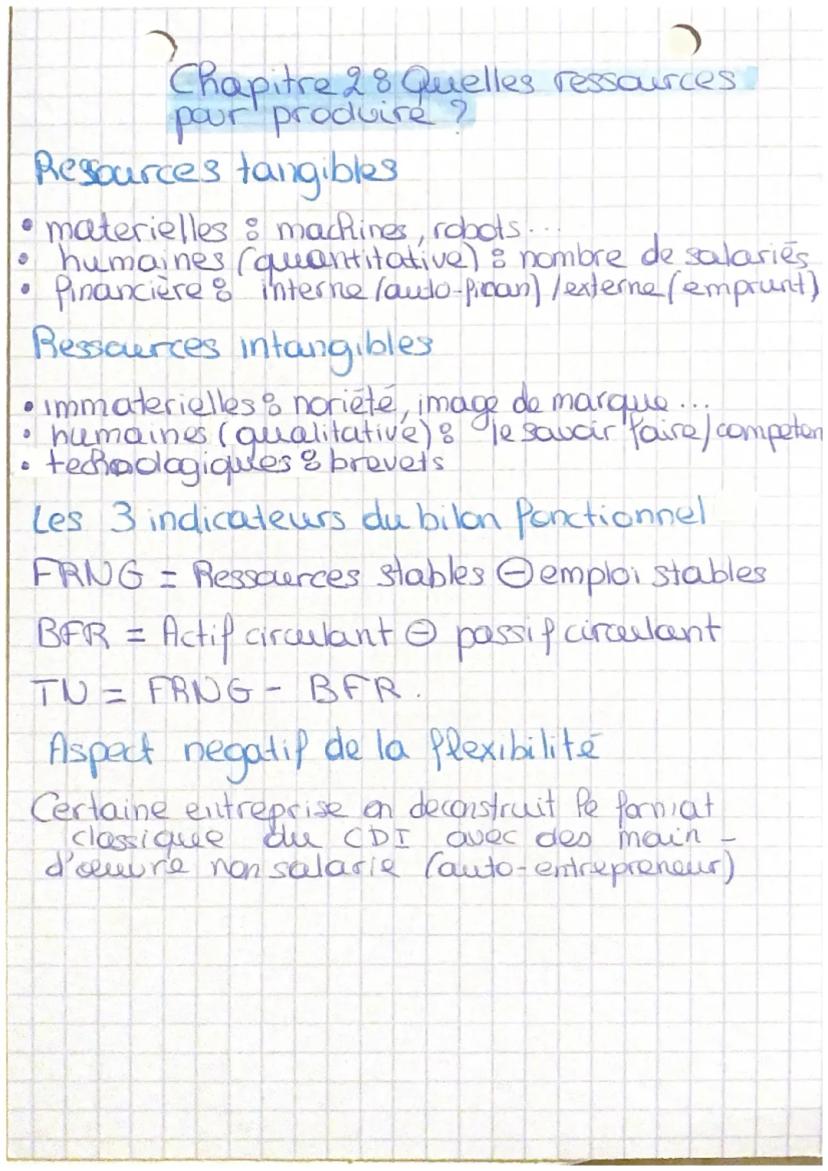 Chapitre 2 : Quelles ressources
pour produire ?
Ressources tangibles
• materielles : machines, robots...
• humaines (quantitative) : nombre de salariés
• financière : interne (auto-finan) / externe (emprunt)
Ressources intangibles
• immaterielles : noriété, image de marque...
• humaines (qualitative) : le savoir faire / competen
• technologiques : brevets
Les 3 indicateurs du bilan fonctionnel
FRNG = Ressources stables ⊖ emploi stables
BFR = Actif circulant ⊖ passif circulant
TN = FRNG - BFR.
Aspect negatif de la flexibilité
Certaine entreprise on deconstruit le format
classique du CDI avec des main -
d'œuvre non salarie (auto-entrepreneur)